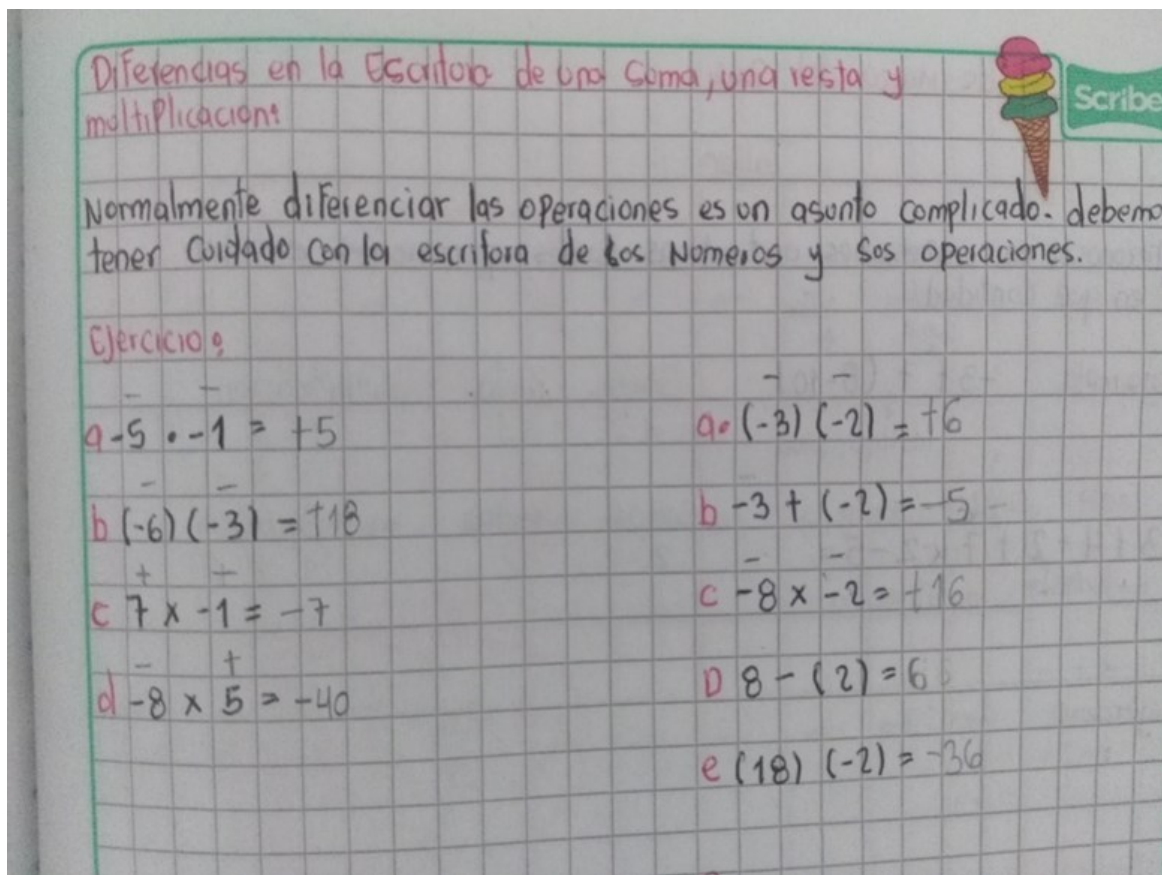 Diferencias en la Escritora de una Suma, una resta y
multiplicacion:
Scribe
Normalmente diferenciar las operaciones es un asunto complicado. debemo
tener cuidado con la escritora de los Números y sos operaciones.
Ejercicio:
- -
a -5 · -1 = +5
- -
b (-6) (-3) = +18
+ -
c 7 x -1 = -7
- +
d -8 x 5 = -40
- -
a. (-3) (-2) = +6
b -3 + (-2) = -5
- -
c -8 x -2 = +16
D 8 - (2) = 6
e (18) (-2) = -36